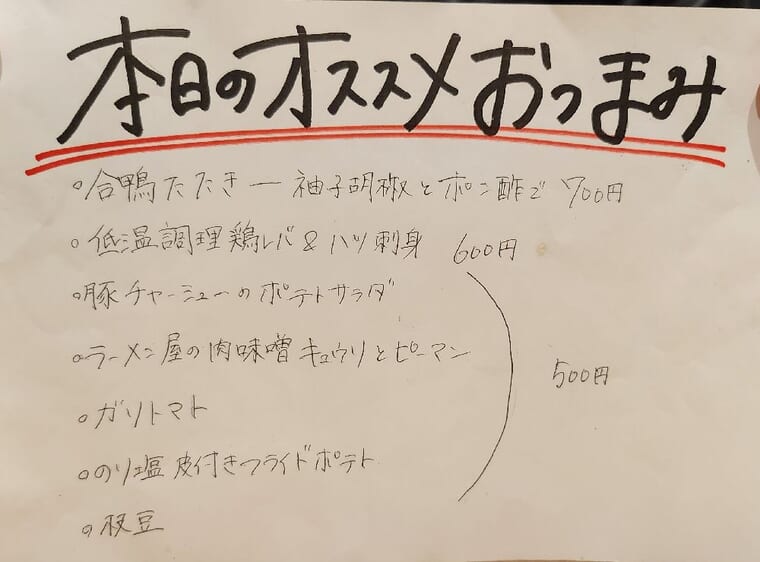 本日のオススメおつまみ
○合鴨たたき ー 袖子胡椒とポン酢で 700円
○低温調理鶏レバ&ハツ刺身 600円
○豚チャーシューのポテトサラダ
○ラーメン屋の肉味噌キュウリとピーマン
500円
○ガリトマト
○のり塩皮付きフライドポテト
○枝豆